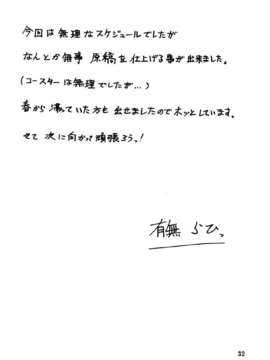 今回は無理なスケジュールでしたが
なんとか無事 原稿を仕上げる事が出来ました。
(コースターは無理でしたが…)
春から凍っていた方も出せましたのでホッとしています。
さて 次に向かって頑張ろう!
有無 らひ
32